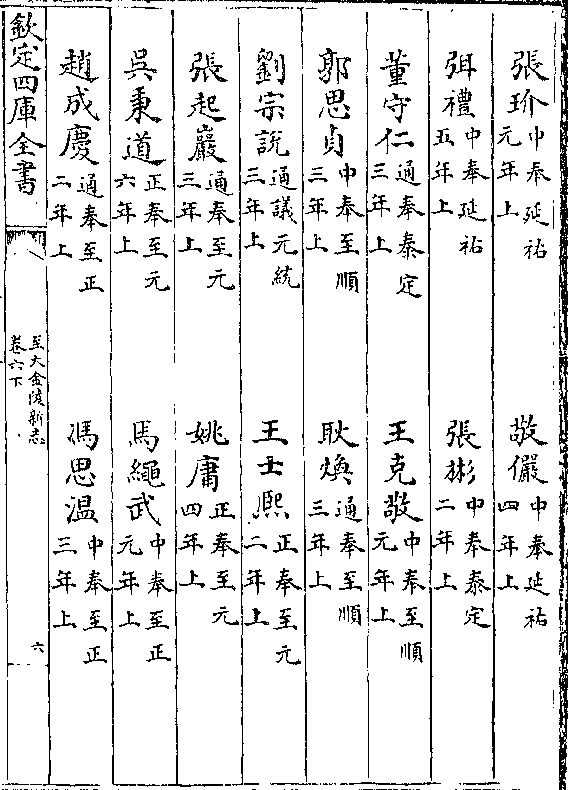 張玠 中奉延祐元年上 敬儼 中奉延祐四年上
弭禮 中奉延祐五年上 張彬 中奉泰定二年上
董守仁 通奉泰定三年上 王克敬 中奉至順元年上
郭思貞 中奉至順三年上 耿煥 通奉至順三年上
劉宗說 通議元統三年上 王士熈 正奉至元二年上
張起巖 通奉至元三年上 姚庸 正奉至元四年上
吳秉道 正奉至元六年上 馬繩武 中奉至正元年上
趙成慶 通奉至正二年上 馮思温 中奉至正三年上
欽定四庫全書 至大金陵新志 卷六下 六